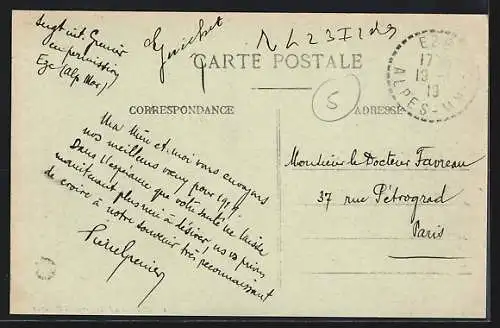 Sergt inft Grenier
en permission
Eze (Alp Mar)
CARTE POSTALE
EZE
17
13
19
ALPES-MMES
5
CORRESPONDANCE
ADRESSE
Ma mère et moi vous envoyons
nos meilleurs vœux pour 1919
Dans l'espérance que votre santé ne laisse
maintenant plus rien à désirer us vs prions
de croire à notre souvenir très reconnaissant
Grenier
Monsieur le Docteur Favreau
37 rue Pétrograd
Paris